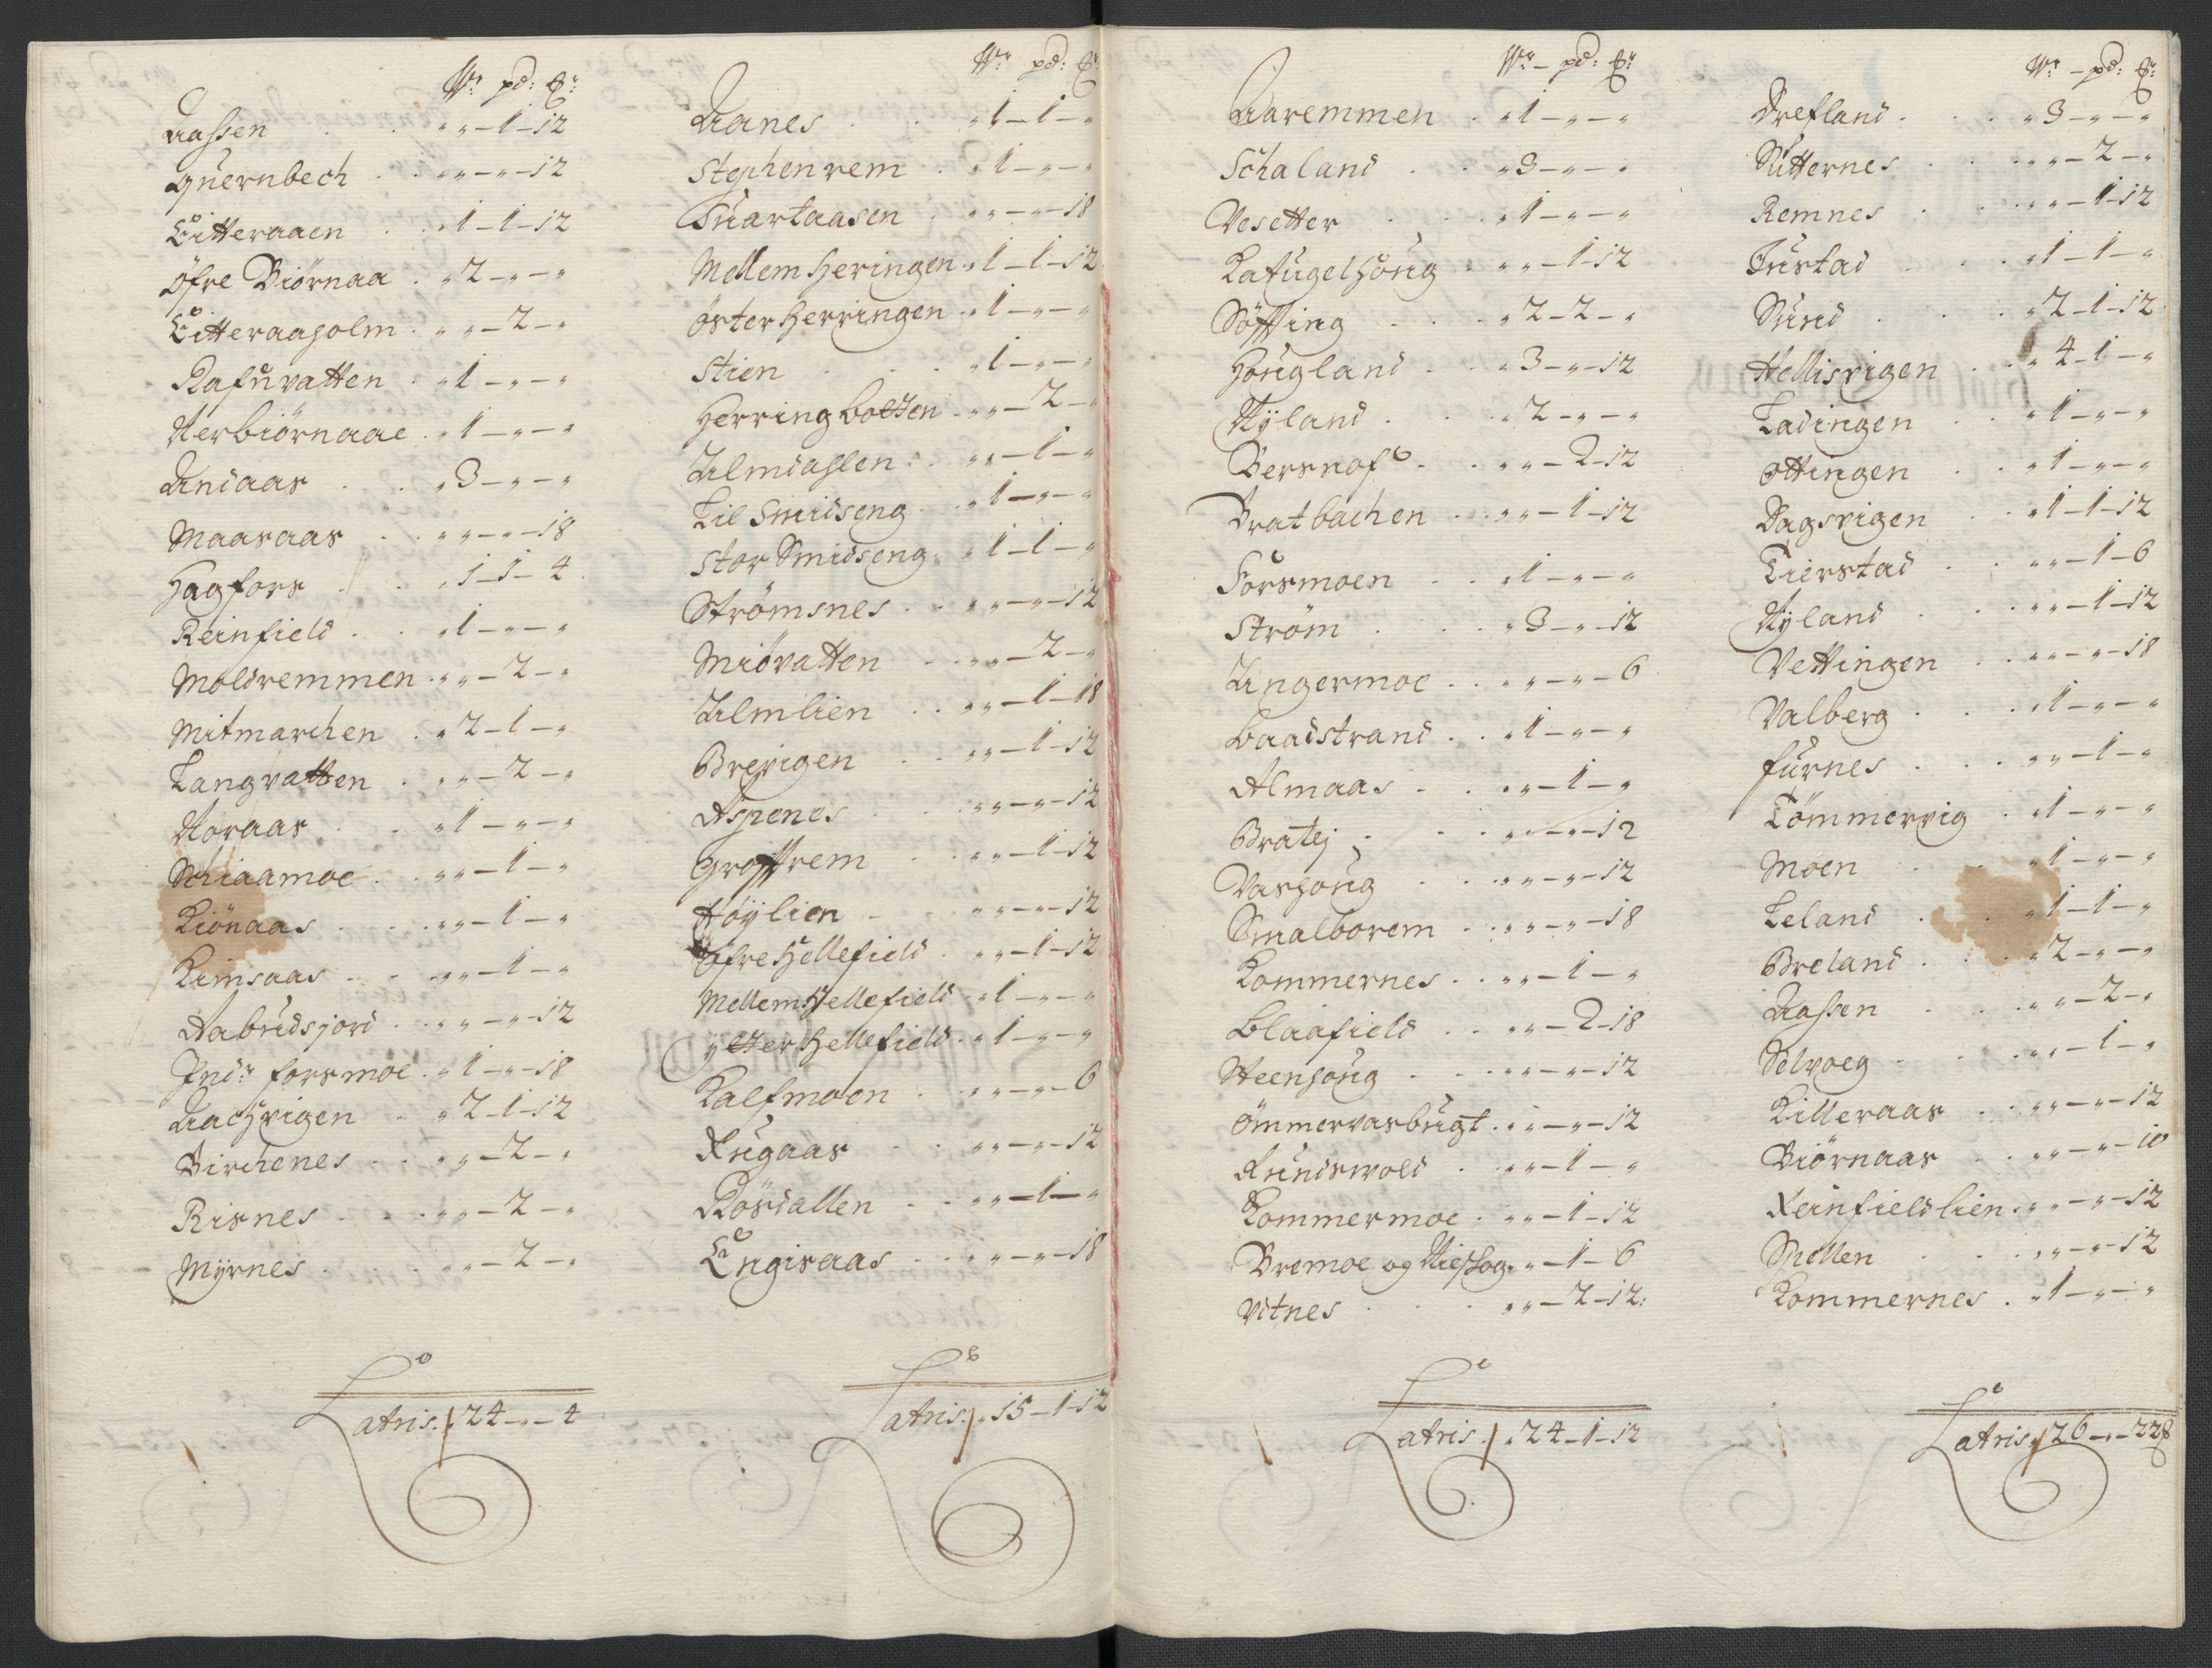 Wr pd: ℔r
Aassen . . „ „ – 1 – 12
Quernbech . . „ „ – „ – 12
Litteraaen . . „ 1 – 1 – 12
Öfre Biörnaa . „ 2 – „ – „
Litteraaholm . „ „ – 2 – „
Rafuvatten . „ 1 – „ – „
Nerbiörnaae . „ 1 – „ – „
Andaas . . „ 3 – „ – „
Maasaas . . „ „ – „ – 18
Hagfors . . „ 1 – 1 – 4
Reinfield . . „ 1 – „ – „
Moldremmen . „ „ – 2 – „
Mitmarchen . „ 2 – 1 – „
Langvatten . „ „ – 2 – „
Noraas . . „ 1 – „ – „
Schiaamoe . . „ „ – 1 – „
Kiönaas . . „ „ – 1 – „
Kimsaas . . „ „ – 1 – „
Aabudsjord . . „ „ – „ – 12
Indr forsmoe . „ 1 – „ – 18
Aachvigen . „ 2 – 1 – 12
Birchenes . . „ „ – 2 – „
Risnes . . „ „ – 2 – „
Myrnes . . „ „ – 2 – „
Latris. „ 24 – „ – 4
Wr pd: ℔r
Aanes . . „ 1 – 1 – „
Stephenrem . „ 1 – „ – „
Suartaasen . „ „ – „ – 18
Mellem Heringen . „ 1 – 1 – 12
Öster Herringen . „ 1 – „ – „
Stien . . „ 1 – „ – „
Herringbotten . „ „ – 2 – „
Almdahlen . . „ „ – 1 – „
Lil Smidseng . „ 1 – „ – „
Stor Smidseng . „ 1 – 1 – „
Strömsnes . . „ „ – „ – 12
Miövatten . . „ „ – 2 – „
Almlien . . „ „ – 1 – 18
Brevigen . . „ „ – 1 – 12
Aspenes . . „ „ – „ – 12
Groffrem . . „ „ – 1 – 12
Höÿlien . . „ „ – „ – 12
Öfre Hellefield . „ „ – 1 – 12
Mellem Hellefield . „ 1 – „ – „
ytter Hellefield . „ 1 – „ – „
Kalfmoen . . „ „ – „ – 6
Rugaas . . „ „ – „ – 12
Rösdallen . . „ „ – 1 – „
Engisaas . . „ „ – „ – 18
Latris. „ 15 – 1 – 12
Wr – pd: ℔r
Aaremmen . „ 1 – „ – „
Schaland . . „ 3 – „ – „
Vesetter . . „ 1 – „ – „
Kafugelhoug . „ „ – 1 – 12
Söffting . . „ 2 – 2 – „
Hougland . . „ 3 – „ – 12
Nyland . . „ 2 – „ – „
Bersnof . . „ „ – 2 – 12
Bratbachen . „ „ – 1 – 12
Forsmoen . . „ 1 – „ – „
Ström . . „ 3 – „ – 12
Ungermoe . . „ „ – „ – 6
Baadstrand . . „ 1 – „ – „
Almaas . . „ „ – 1 – „
Bratej . . „ „ – „ – 12
Vashoug . . „ „ – „ – 12
Smalborem . . „ „ – „ – 18
Kommernes . . „ „ – 1 – „
Blaafield . . „ „ – 2 – 18
Steenhoug . . „ „ – „ – 12
Ömmervasbugt . „ „ – „ – 12
Rundswold . „ „ – 1 – „
Kommermoe . „ „ – 1 – 12
Bremoe og . „ „ – 1 – 6
Vitnes . . „ „ – 2 – 12:
Latris. „ 24 – 1 – 12
Wr – pd: ℔r
Drefland . . „ 3 – „ – „
Sutternes . . „ „ – 2 – „
Remnes . . „ „ – 1 – 12
Justad . . „ 1 – 1 – „
Sund . . „ 2 – 1 – 12
Hellisvigen . . „ 4 – 1 – „
Ladingen . . „ 1 – „ – „
Ottingen . . „ 1 – „ – „
Dagsvigen . . „ 1 – 1 – 12
Tierstad . . „ „ – 1 – 6
Nyland . . „ „ – 1 – 12
Vettingen . . „ „ – „ – 18
Valberg . . „ 1 – „ – „
Furnes . . „ „ – 1 – „
Tömmervig . „ 1 – „ – „
Moen . . „ 1 – „ – „
Leland . . „ 1 – 1 – „
Breland . . „ 2 – „ – „
Aassen . . „ „ – 2 – „
Selvoeg . . „ „ – 1 – „
Killeraas . . „ „ – „ – 12
Biörnaas . . „ „ – „ – 10
Reinfieldlien . „ „ – „ – 12
Spellen . . „ „ – „ – 12
Kommernes . „ 1 – „ – „
Latris. „ 26 – „ – 22